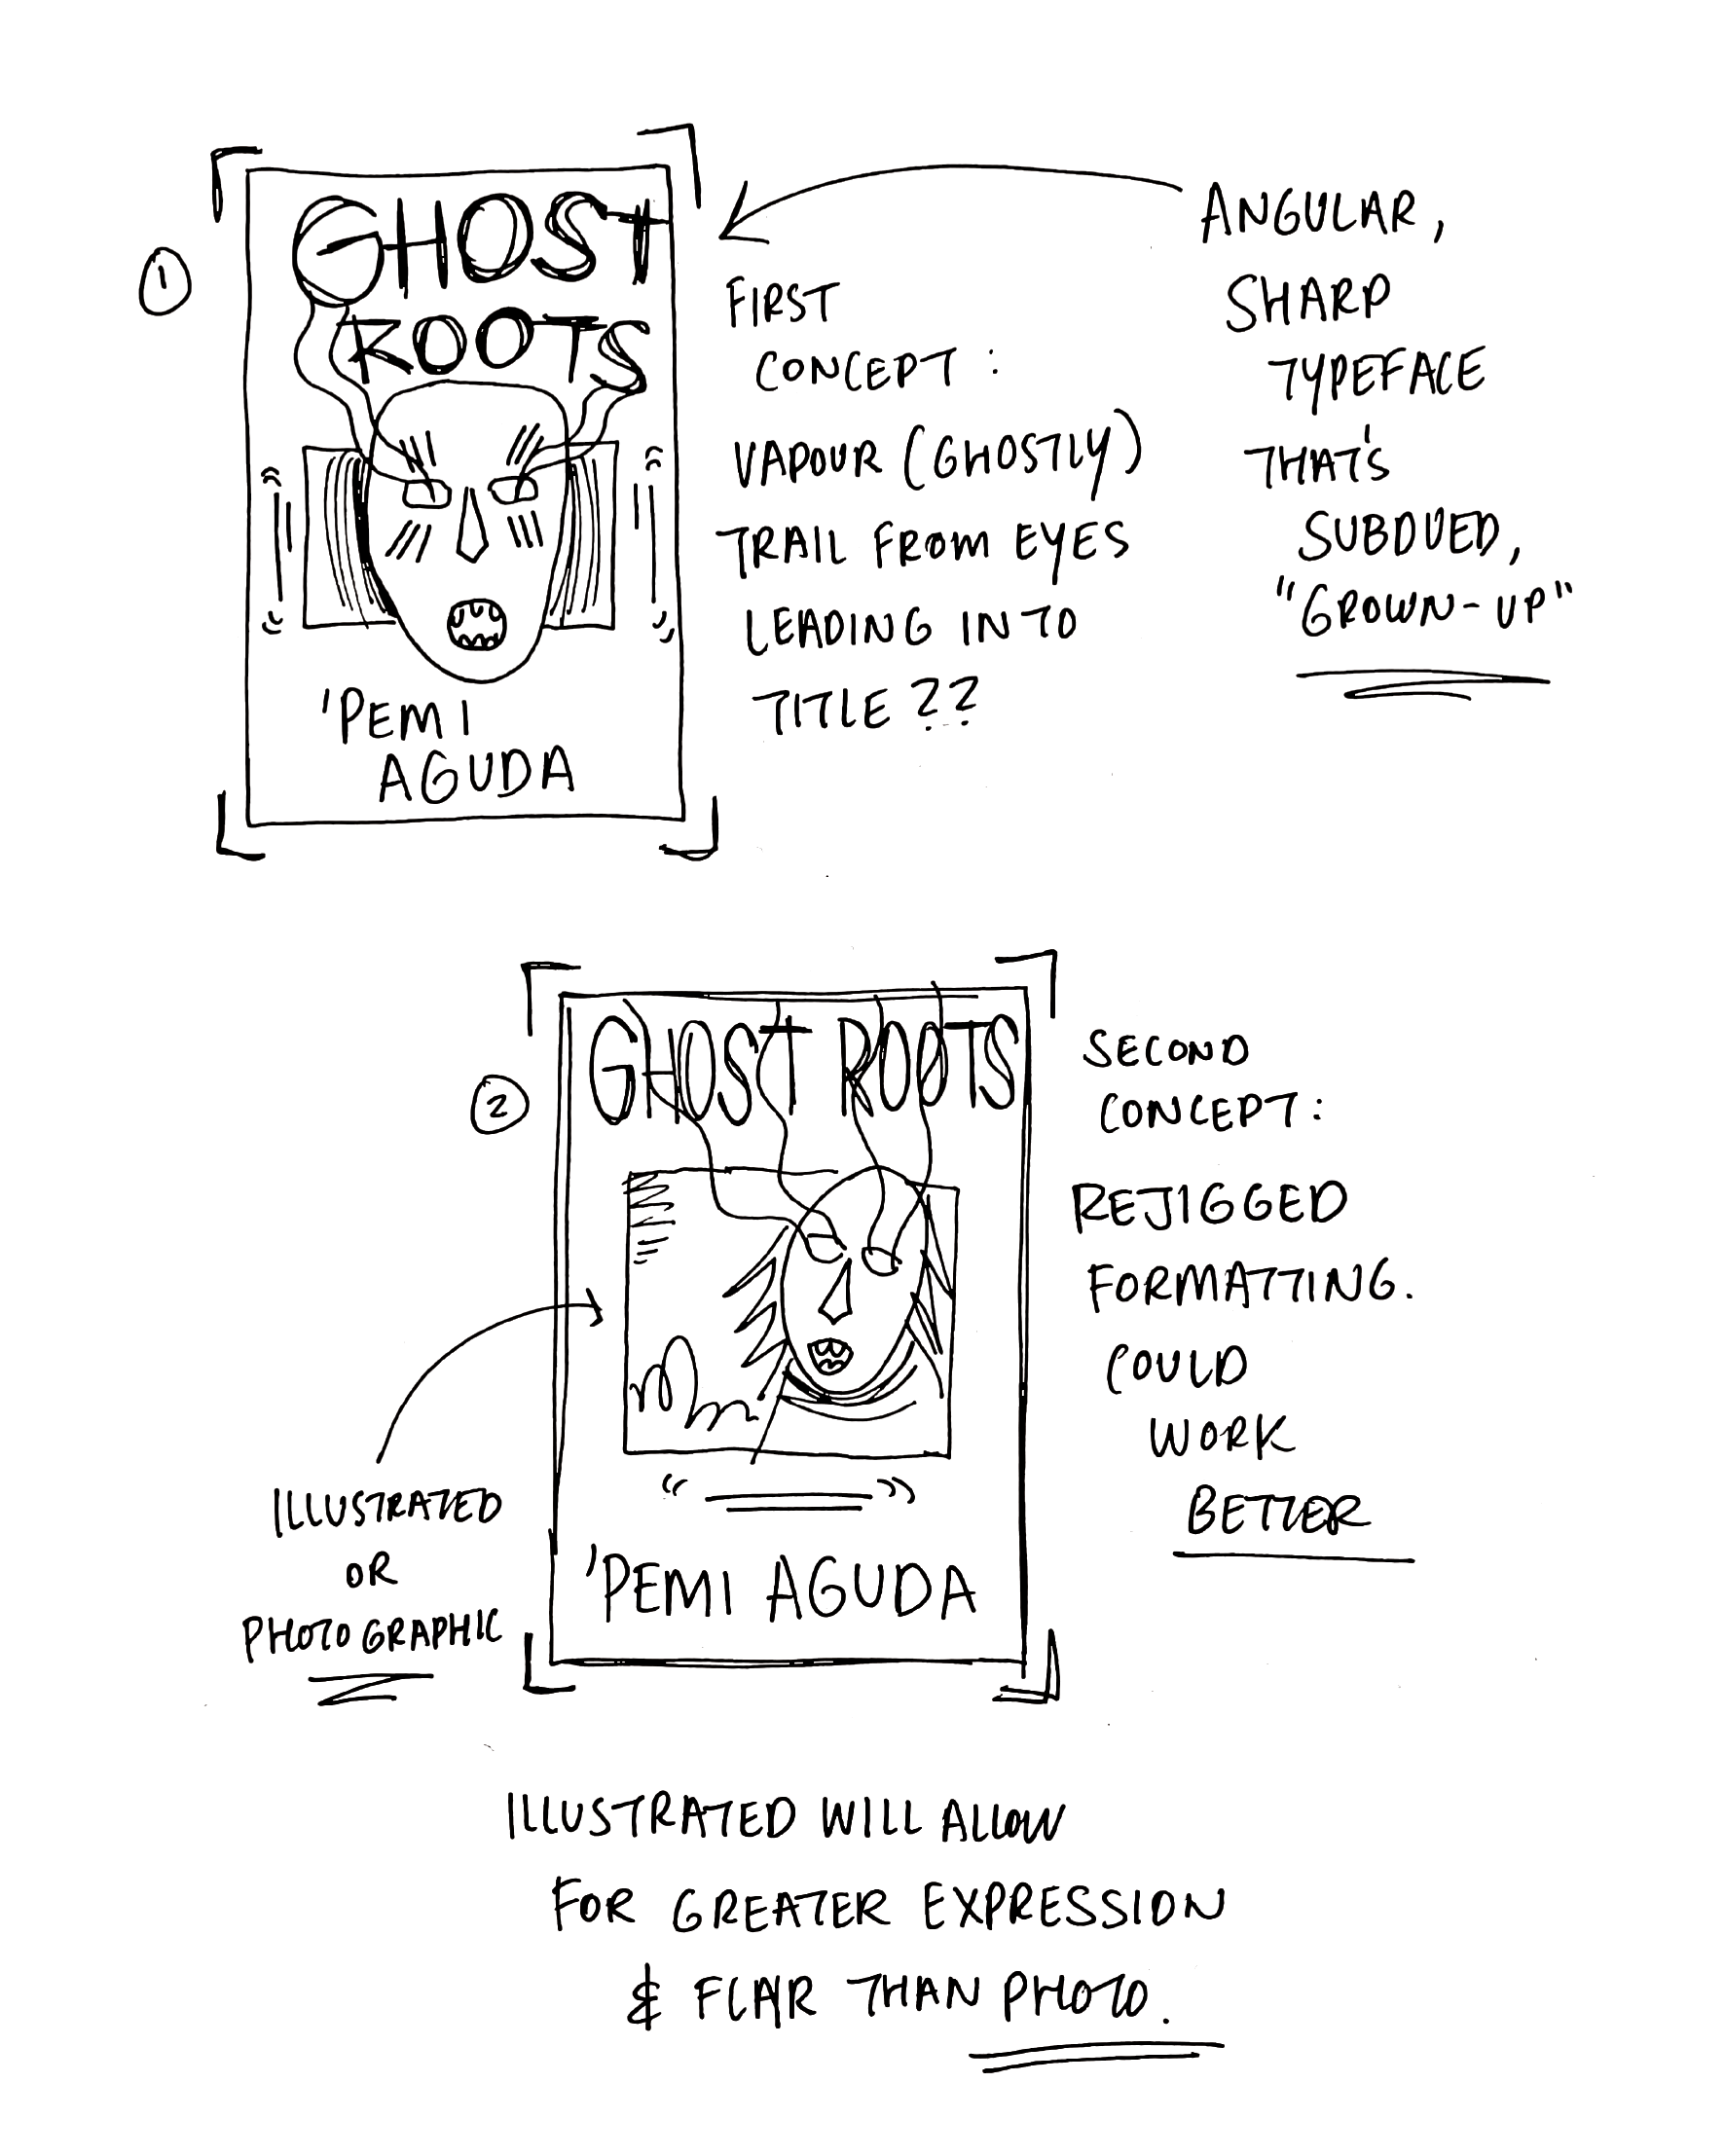 ①
GHOST
ROOTS
'PEMI
AGUDA
FIRST
CONCEPT:
VAPOUR (GHOSTLY)
TRAIL FROM EYES
LEADING INTO
TITLE??
ANGULAR,
SHARP
TYPEFACE
THAT'S
SUBDUED,
"GROWN-UP"
②
GHOST ROOTS
'PEMI AGUDA
SECOND
CONCEPT:
REJIGGED
FORMATTING.
COULD
WORK
BETTER
ILLUSTRATED
OR
PHOTOGRAPHIC
ILLUSTRATED WILL ALLOW
FOR GREATER EXPRESSION
& FLAIR THAN PHOTO.